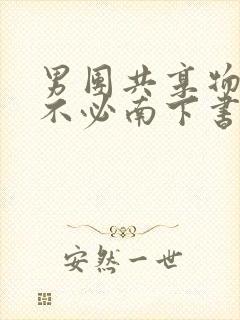 男团共享物
不必南下书
安然一世